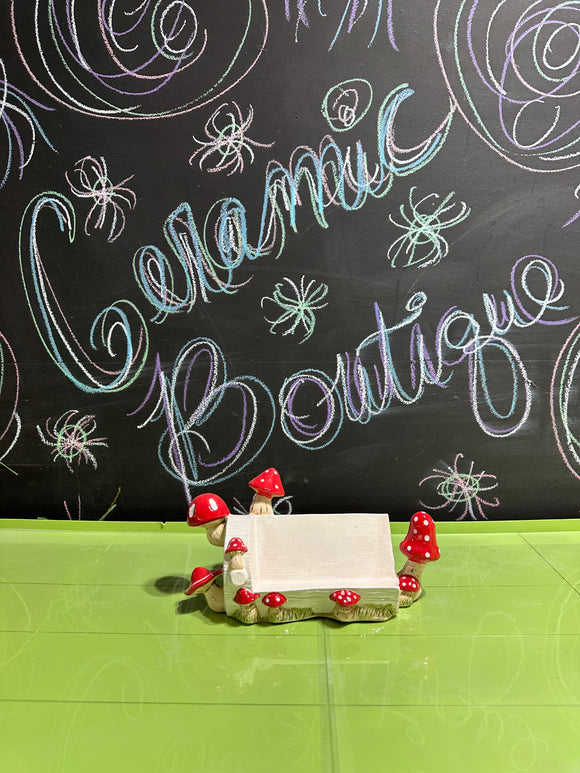 Ceramic
Boutique